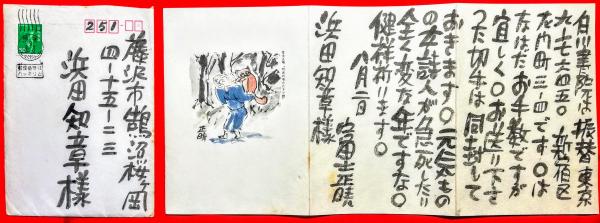 251
藤沢市鵠沼桜ヶ岡
四ー十五ー二三
浜田知章様
白川書院は振替東京
新宿区
左門町三ノ四です〇は
なはだお手数ですが
宜しく〇お送り下さ
った切手は同封して
おきます〇元気もの
の本詩人が急死したり
全く変な年ですな〇
健祥祈ります〇
八月二日 富士正晴
浜田知章様
正晴